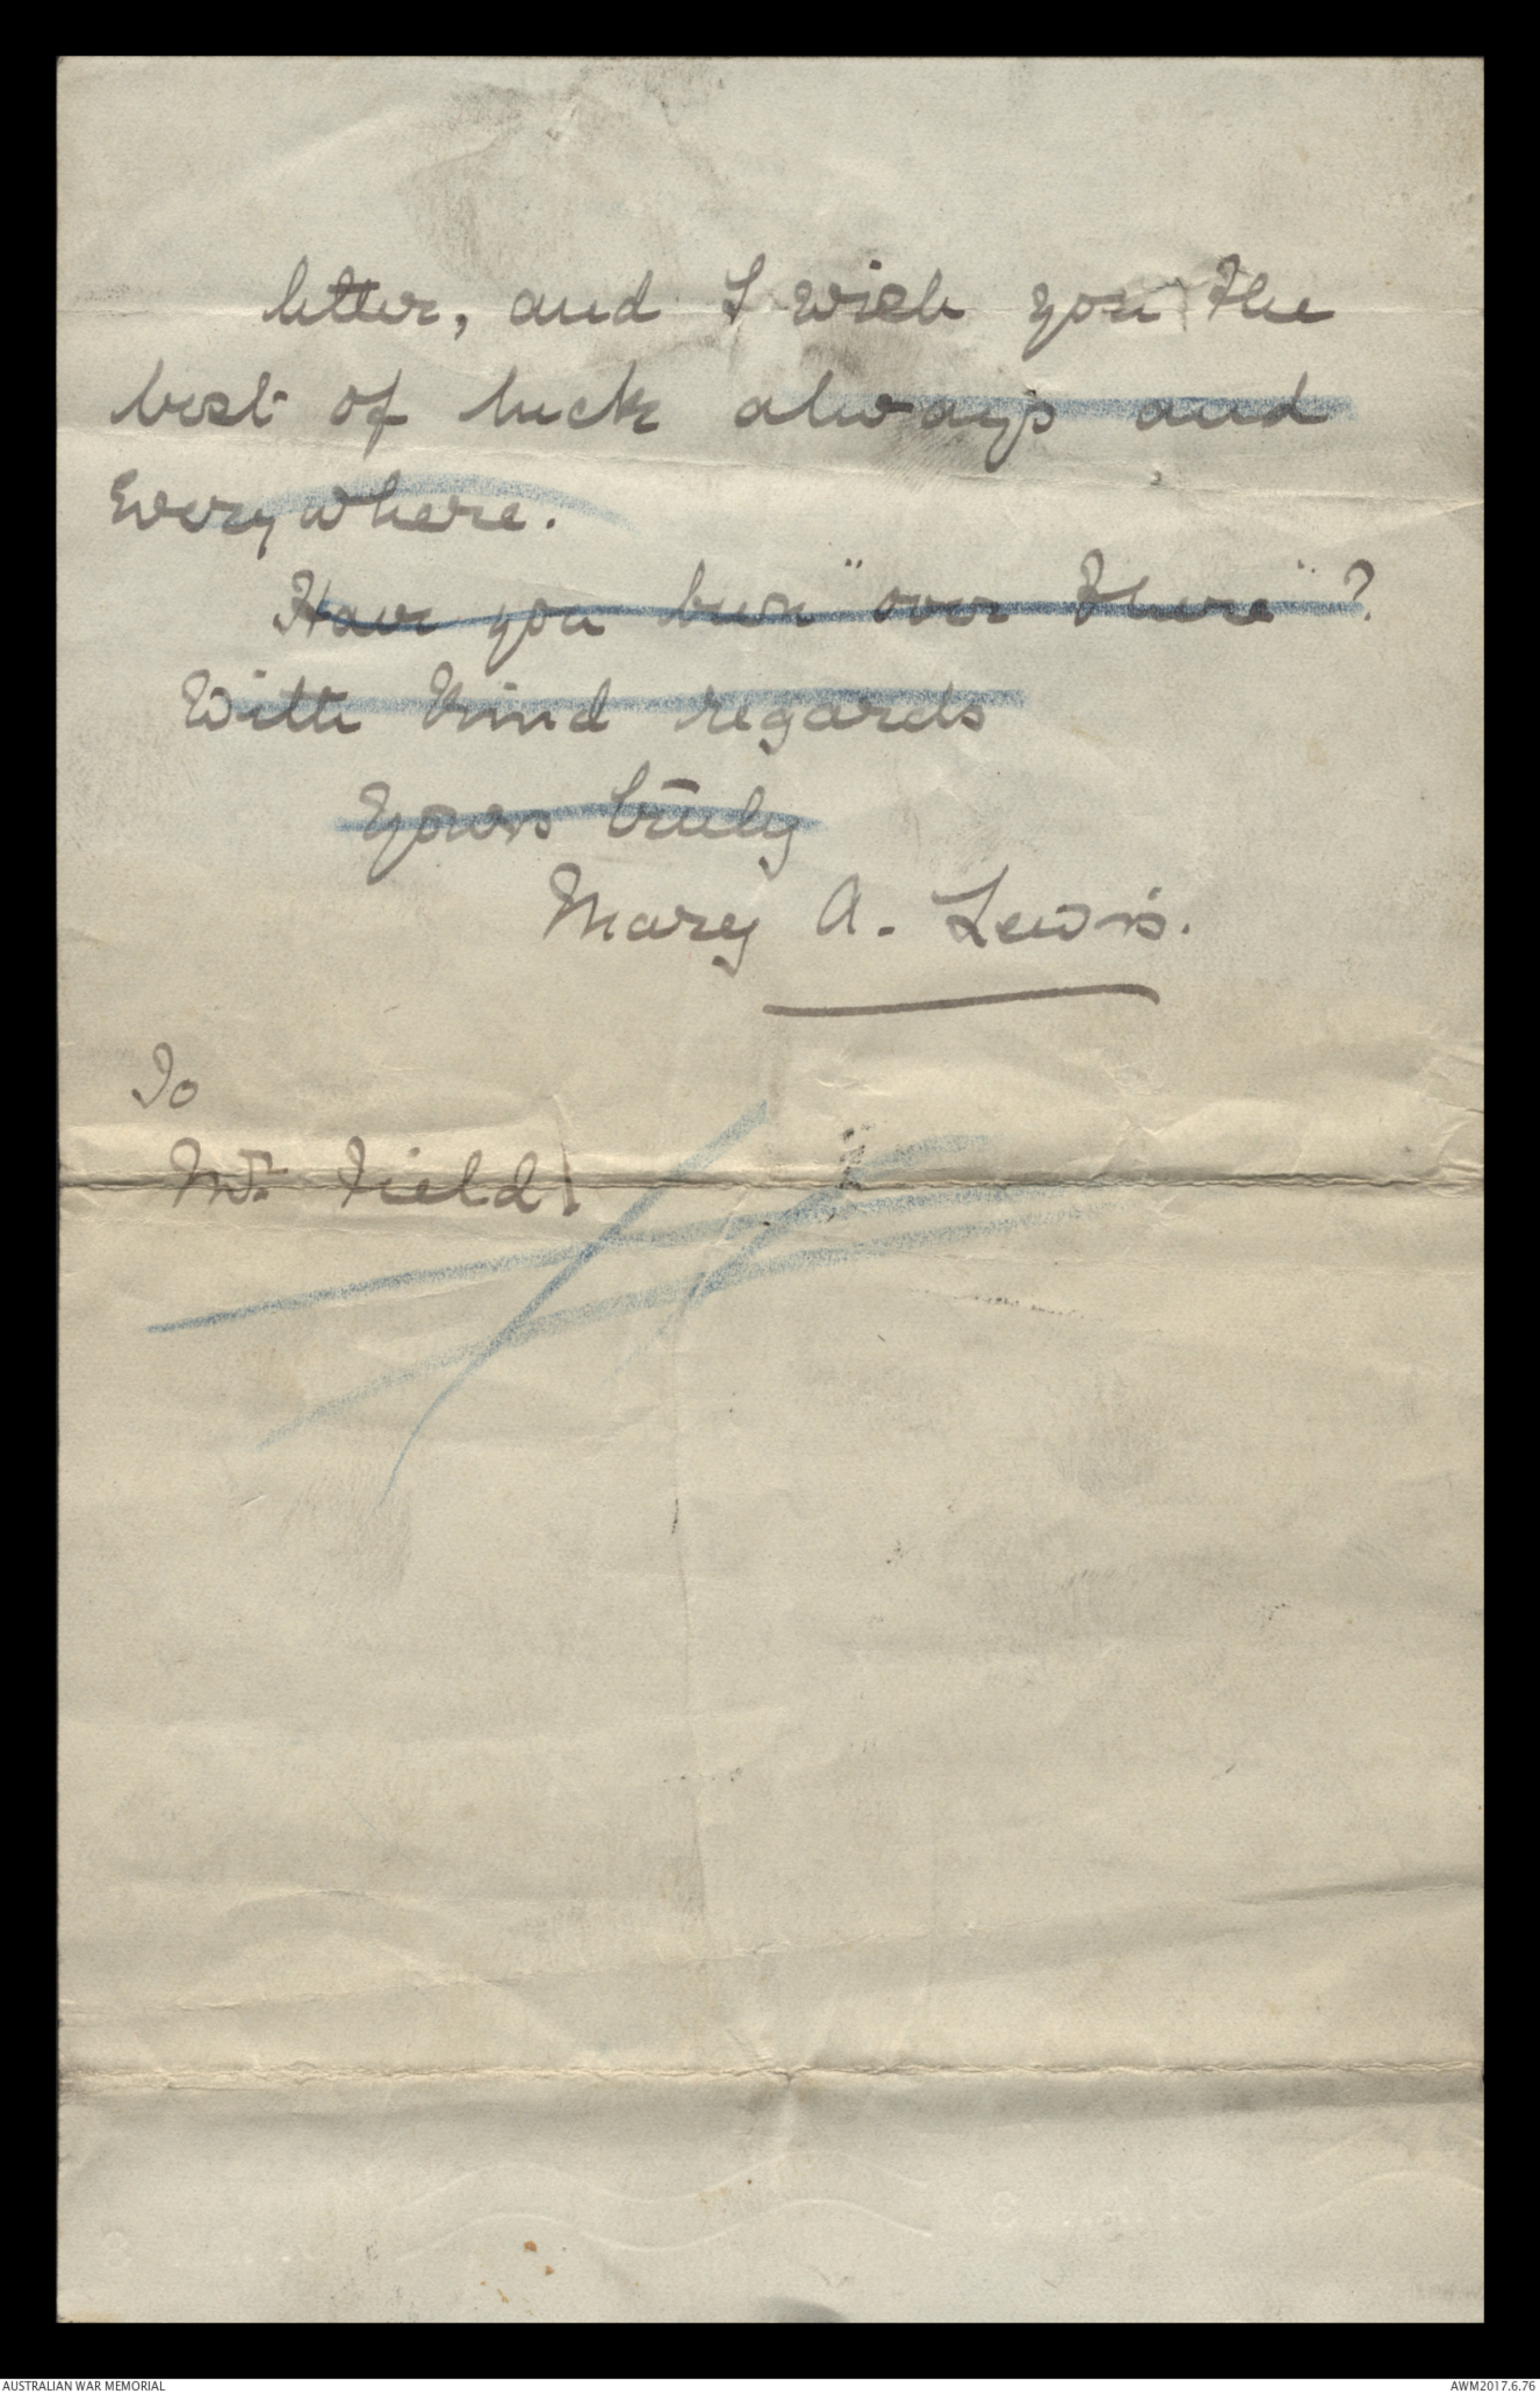 letter, and I wish you the
best of luck always and
Everywhere.
Have you been "over there"?
With kind regards
Yours truly
Mary A. Lewis.
To
Mr Field
AUSTRALIAN WAR MEMORIAL
AWM2017.6.76